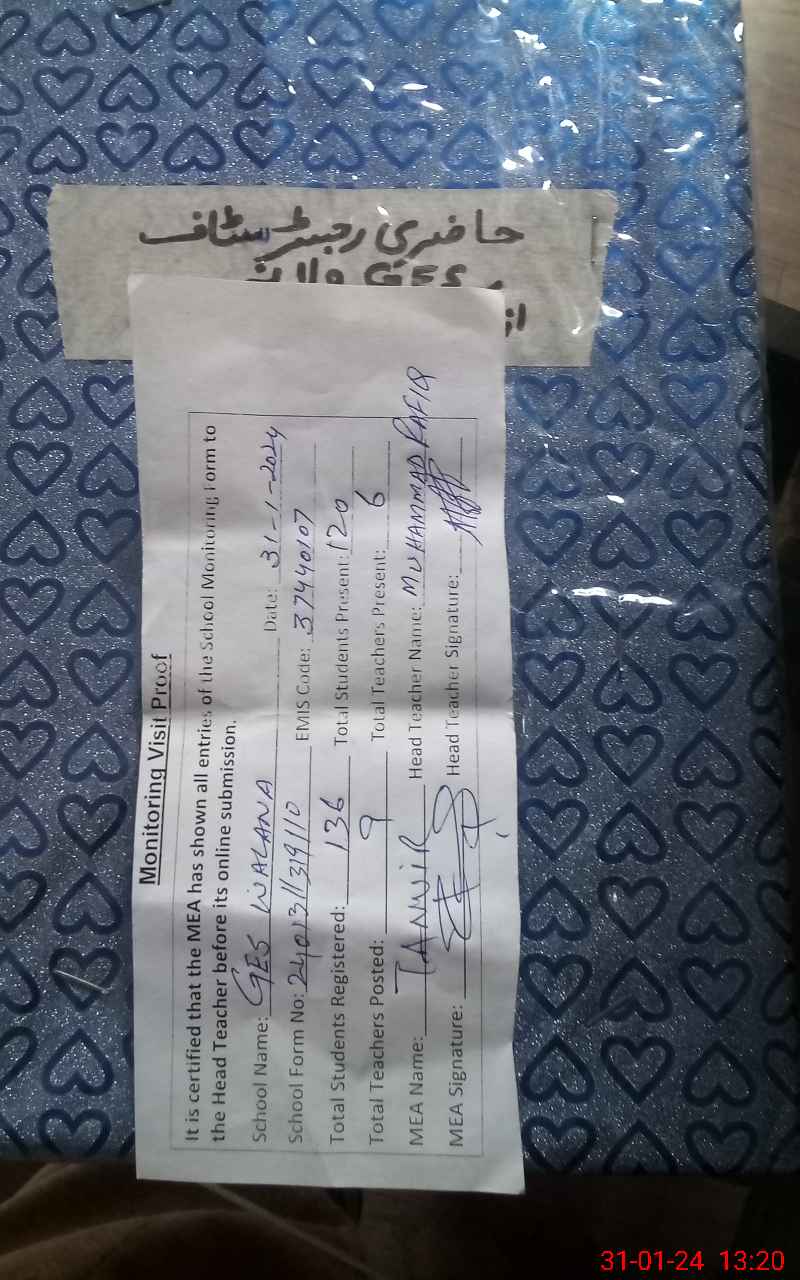 حاضری رجسٹر سٹاف
Monitoring Visit Proof
It is certified that the MEA has shown all entries of the School Monitoring Form to
the Head Teacher before its online submission.
School Name: GES WALANA Date: 31-1-2024
School Form No: 2401311319110 EMIS Code: 37440107
Total Students Registered: 136 Total Students Present: 120
Total Teachers Posted: 9 Total Teachers Present: 6
MEA Name: TANVIR Head Teacher Name: MUHAMMAD RAFIQ
MEA Signature: Head Teacher Signature:
31-01-24 13:20